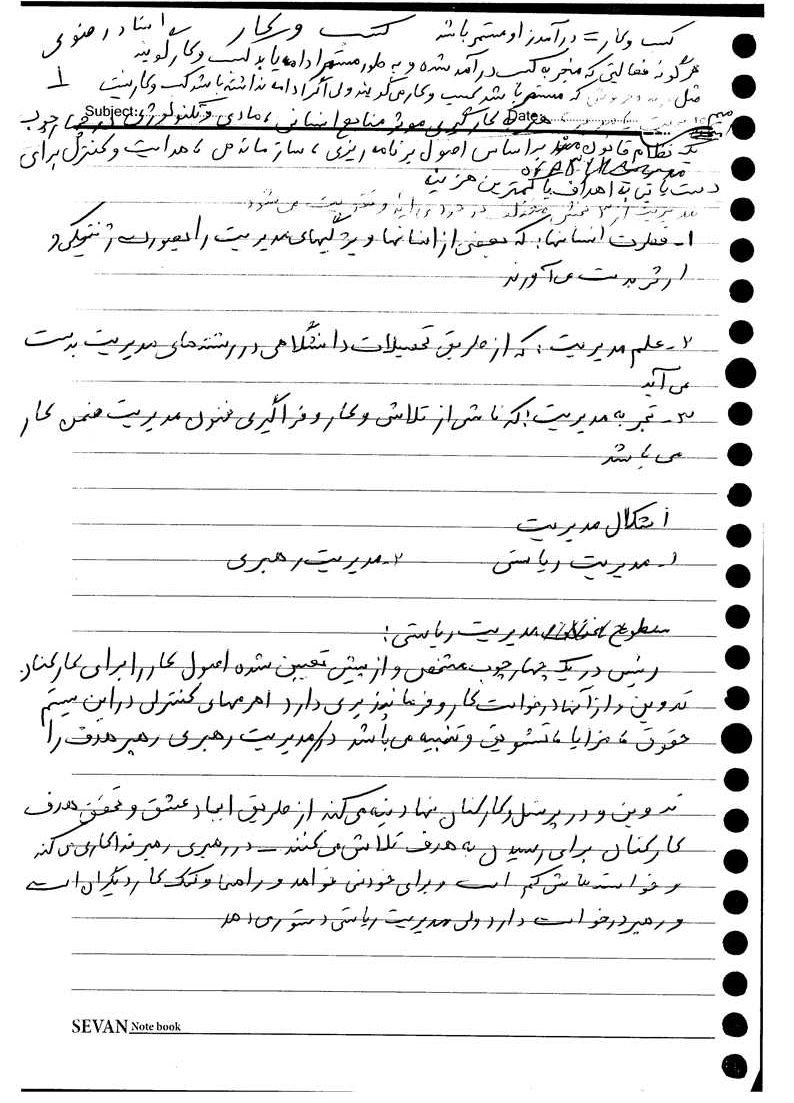 کسب و کار استاد رضوی
کسب و کار = درآمدزا و مستمر باشد
هر گونه فعالیتی که منجر به کسب درآمد شده و به طور مستمر ادامه یابد کسب و کار گویند
مثل که مستمر باشد کسب و کار می گویند ولی اگر ادامه نداشته باشد کسب و کار نیست
1
Subject: Date
مدیریت بکارگیری موثر منابع انسانی، مادی و تکنولوژی در چهارچوب
یک نظام قانون بر اساس اصول برنامه ریزی، سازماندهی، هدایت و کنترل برای
دست یابی به اهداف با کمترین هزینه
مدیریت از ۳ بخش می شود
۱- فطرت انسانها: که بعضی از انسانها ویژگیهای مدیریت را بصورت ژنتیکی و
ارثی بدست می آورند
۲- علم مدیریت: که از طریق تحصیلات دانشگاهی در رشته های مدیریت بدست
می آید
۳- تجربه مدیریت: که ناشی از تلاش و کار و فراگیری فنون مدیریت ضمن کار
می باشد
اشکال مدیریت
۱- مدیریت ریاستی ۲- مدیریت رهبری
سطوح مدیریت ریاستی:
رئیس در یک چهارچوب مشخص و از پیش تعیین شده اصول کار را برای کارکنان
تدوین و از آنها درخواست کار و فرمانپذیری دارد اهرمهای کنترلی در این سیستم
حقوق، مزایا، تشویق و تنبیه می باشد در مدیریت رهبری رهبر هدف را
تدوین و در پرسنل و کارکنان نهادینه می کند از طریق ایجاد عشق و تحقق هدف
کارکنان برای رسیدن به هدف تلاش می کنند - در رهبری رهبر فداکاری می کند
و خواسته هایش کم است و برای خودش نمی خواهد و راهنما و کمک کار دیگران است
و رهبر درخواست دارد ولی مدیریت ریاستی دستور می دهد
SEVAN Note book